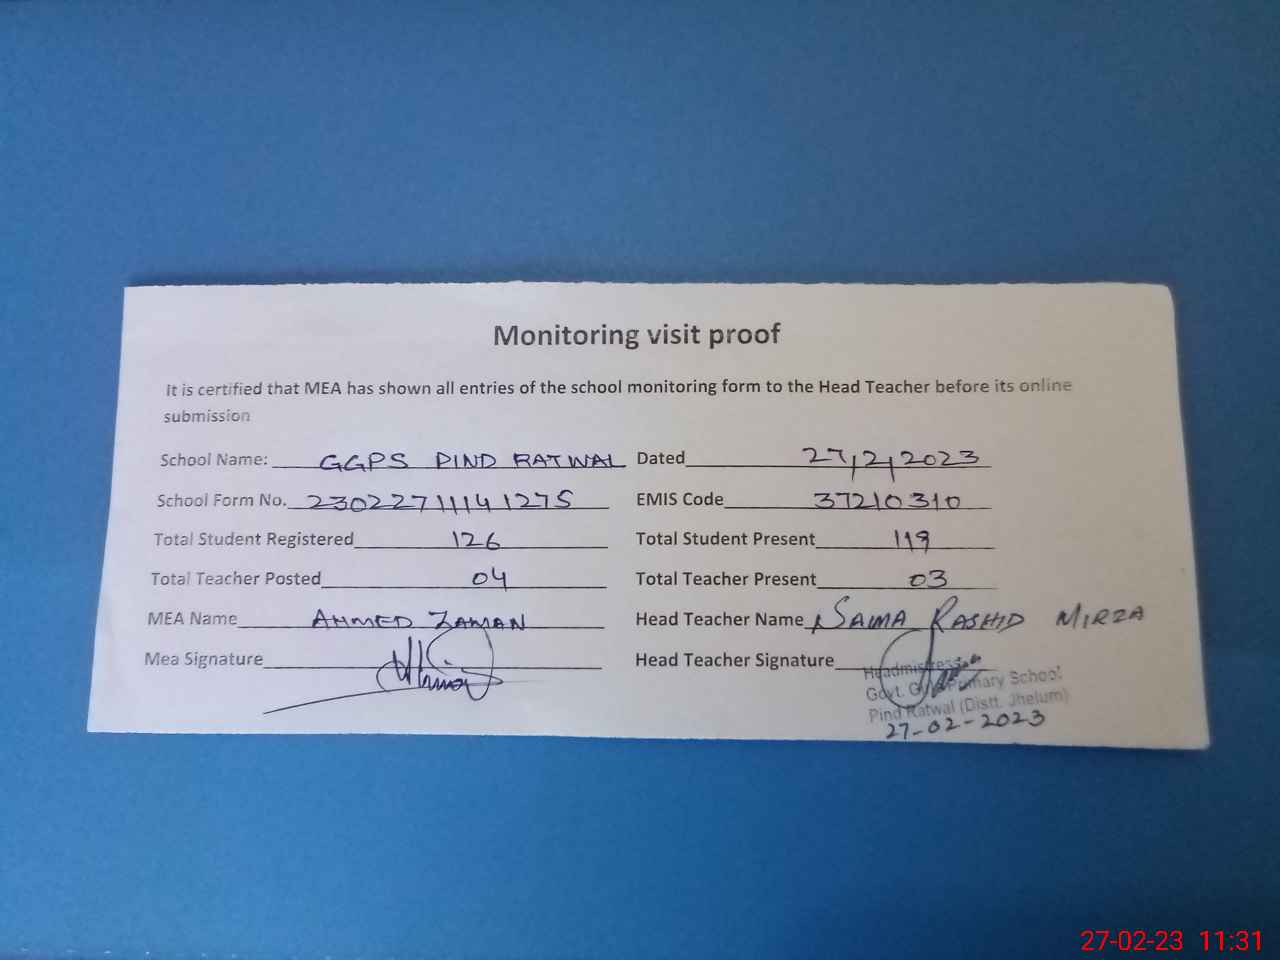 Monitoring visit proof
It is certified that MEA has shown all entries of the school monitoring form to the Head Teacher before its online
submission
School Name: GGPS PIND RATWAL Dated 27/2/2023
School Form No. 23022711141275 EMIS Code 37210310
Total Student Registered 126 Total Student Present 119
Total Teacher Posted 04 Total Teacher Present 03
MEA Name AHMED ZAMAN Head Teacher Name SAIMA RASHID MIRZA
Mea Signature Head Teacher Signature
Headmistress
Govt. Girls Primary School
Pind Ratwal (Distt. Jhelum)
27-02-2023
27-02-23 11:31